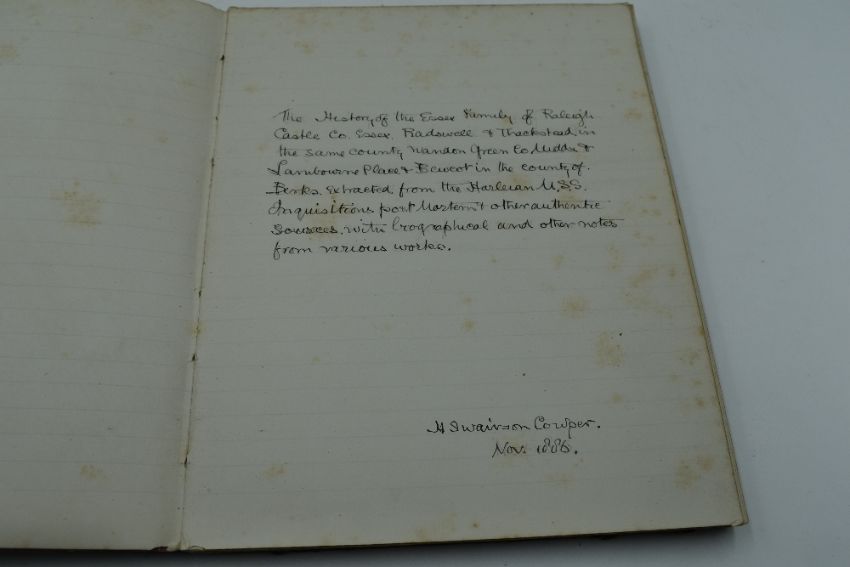 The History of the Essex Family of Raleigh
Castle Co. Essex. Radswell & Thackstead, in
the same county Wandon Green Co. Middx &
Lambourne Place & Bewcot in the county of
Berks. Extracted from the Harleian M.S.S.
Inquisitions post Mortem & other authentic
sources, with biographical and other notes
from various works.
H Swainson Cowper.
Nov. 1886.